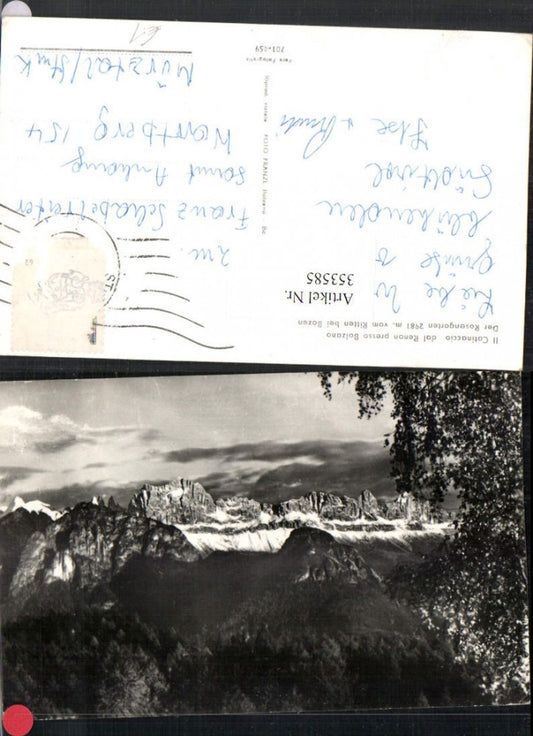 Il Catinaccio dal Renon presso Bolzano
Der Rosengarten 2981 m. vom Ritten bei Bozen
Artikel Nr.
353585
Liebe
Grüße v
blühenden
Südtirol
Ilse u
Fam.
Franz Schabelreiter
samt Anhang
Wartberg 154
Mürztal/Stmk
Riprod. vietata FOTO FRANZL Bolzano Bz
Vera Fotografia
61